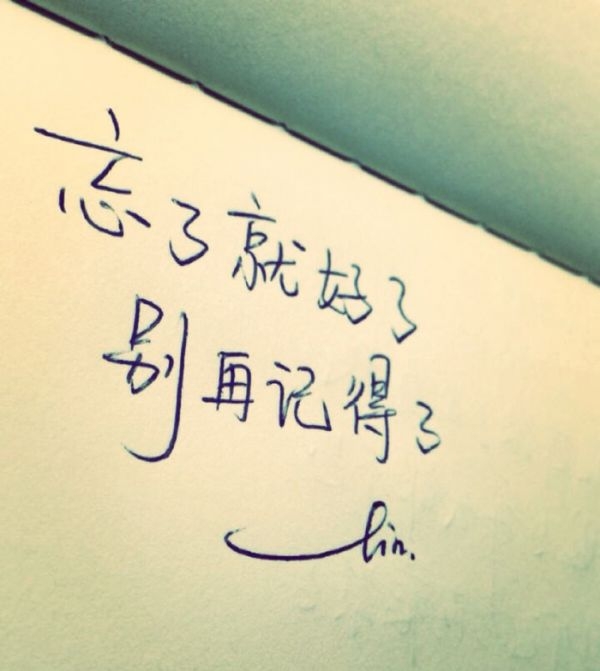 忘了就好了
别再记得了
lin.